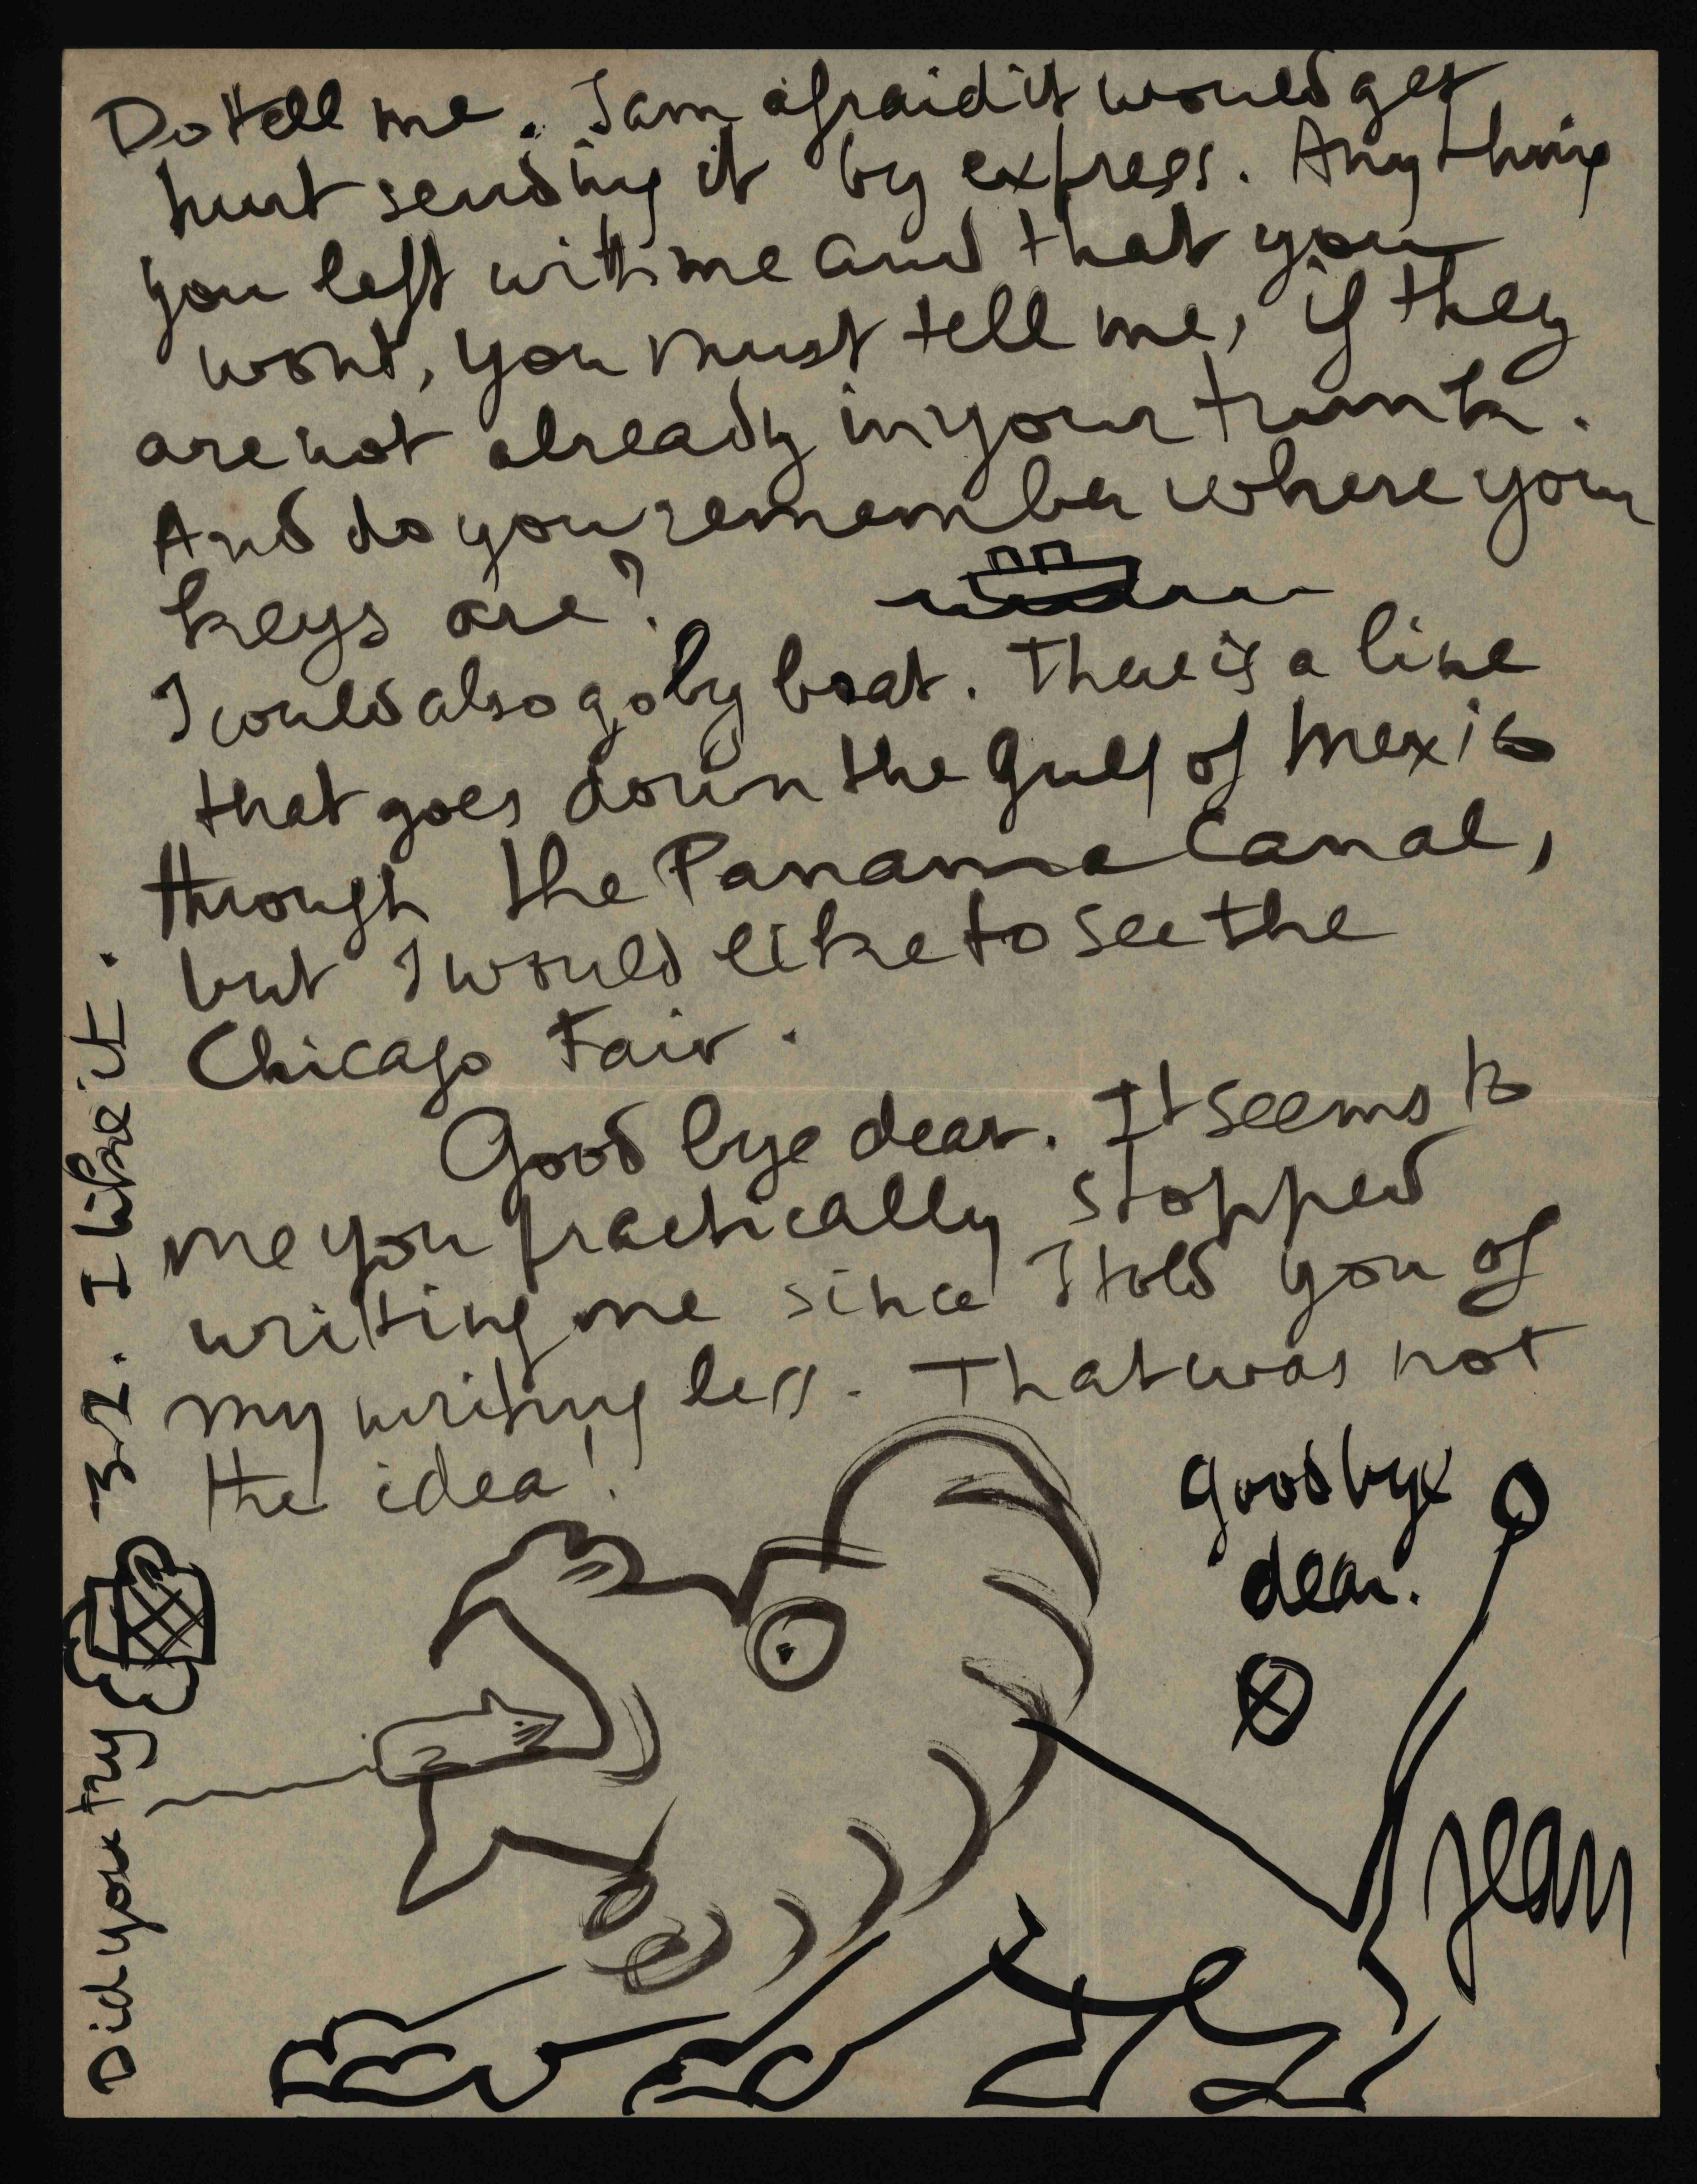 Do tell me. I am afraid it would get
hurt sending it by express. Anything
you left with me and that you
want, you must tell me, if they
are not already in your trunk.
And do you remember where your
keys are?
I could also go by boat. There is a line
that goes down the Gulf of Mexico
through the Panama Canal,
but I would like to see the
Chicago Fair.
Good bye dear. It seems to
me you practically stopped
writing me since I told you of
my writing less. That was not
the idea!
Good bye
dear.
Jean
Did you try 3.2. I like it.